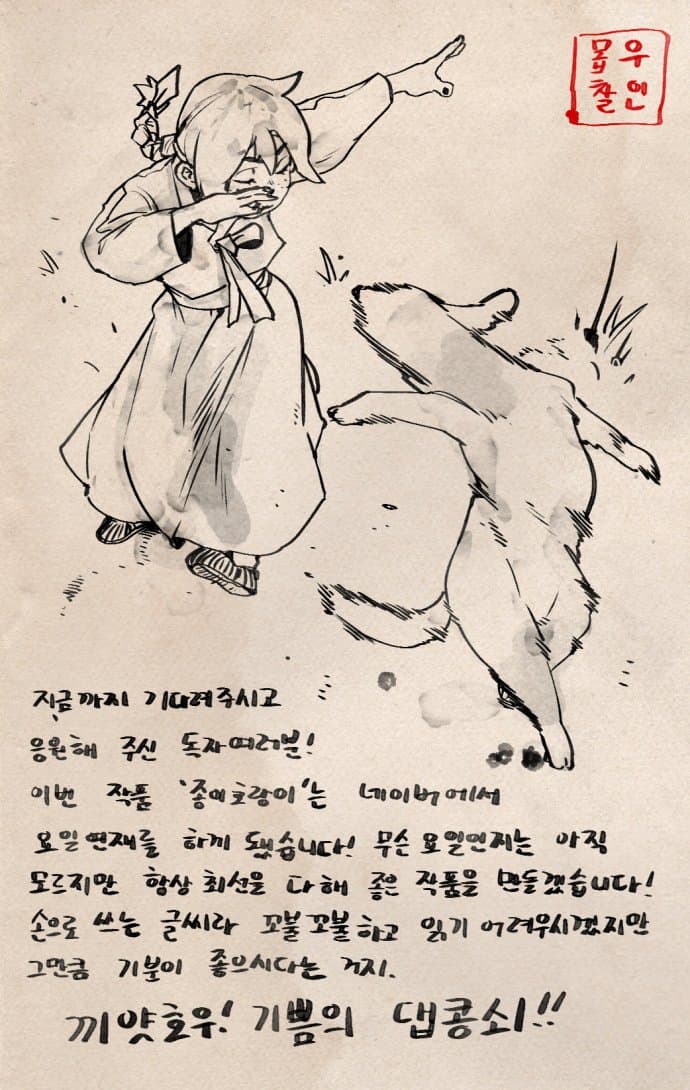 몹우
찰인
지금까지 기다려주시고
응원해 주신 독자여러분!
이번 작품 '종이호랑이'는 네이버에서
요일연재를 하끼 됐습니다! 무슨 요일인지는 아직
모르지만 항상 최선을 다해 좋은 작품을 만들겠습니다!
손으로 쓰는 글씨라 꼬불꼬불하고 읽기 어려우시겠지만
그만큼 기분이 좋으시다는 거지.
끼얏호우! 기쁨의 댑콩쇠!!